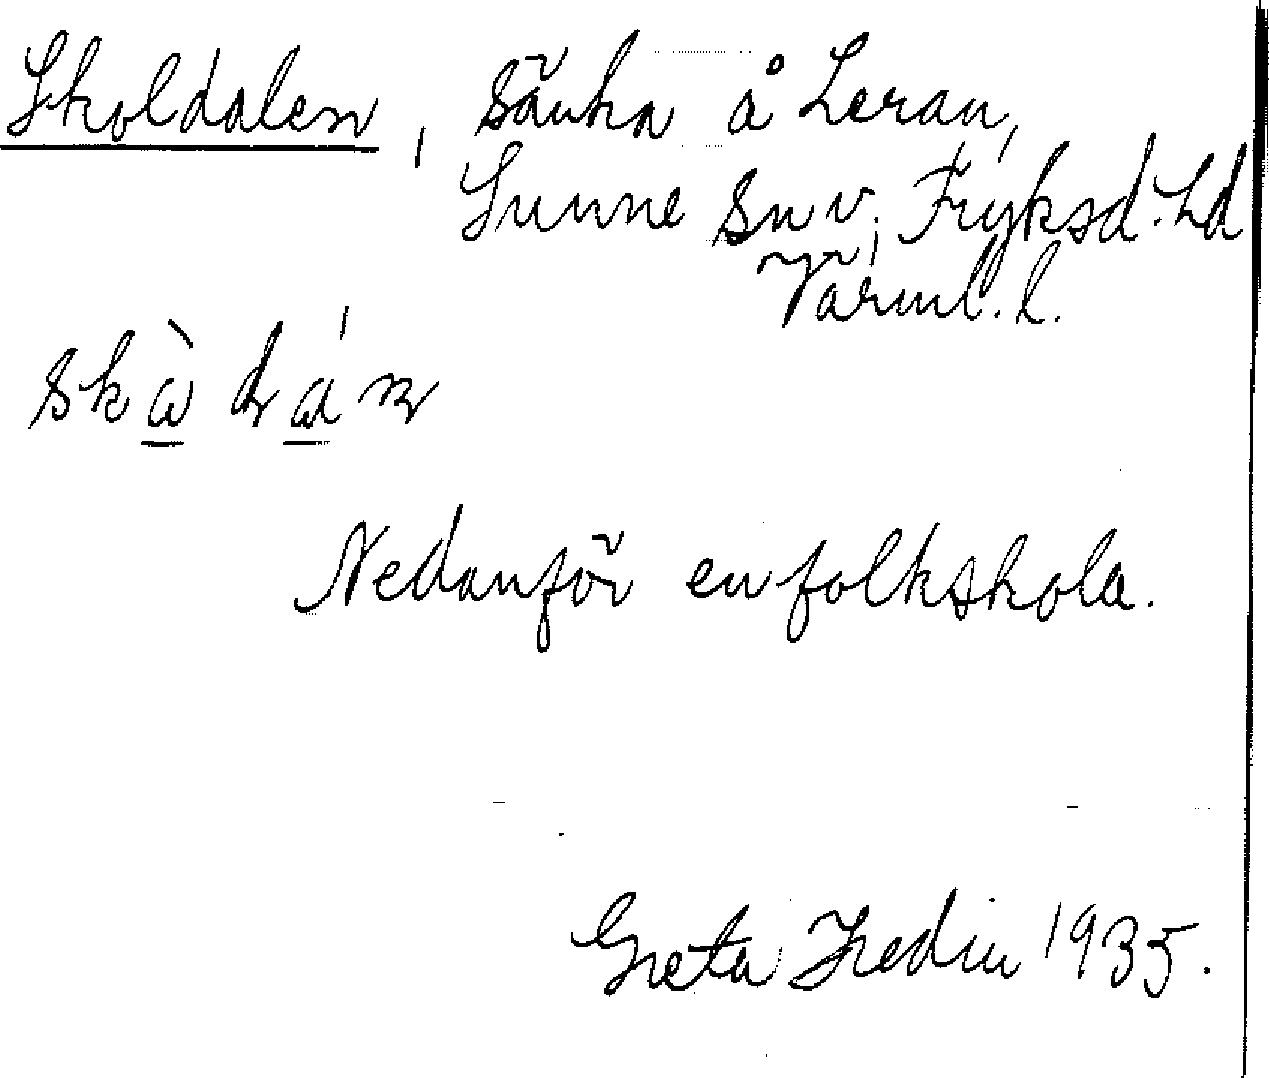 Skoldalen, sänka å Leran,
Sunne sn v, Fryksd. hd
Värml. l.
Nedanför en folkskola.
Greta Hedin 1935.